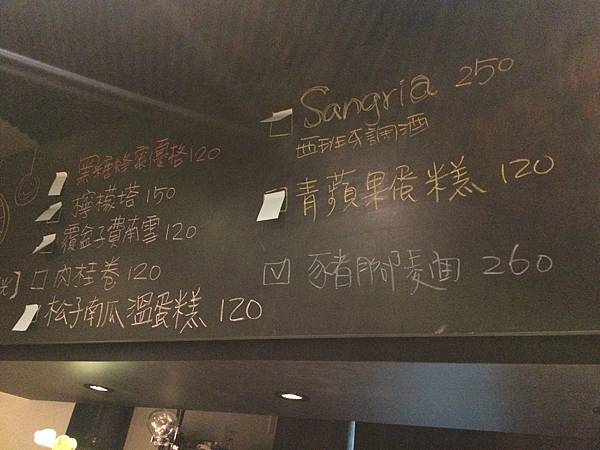 黑糖蜂蜜優格120
檸檬塔150
覆盆子費南雪120
肉桂卷120
松子南瓜溫蛋糕120
Sangria 250
西班牙調酒
青蘋果蛋糕 120
豬腳麵 260